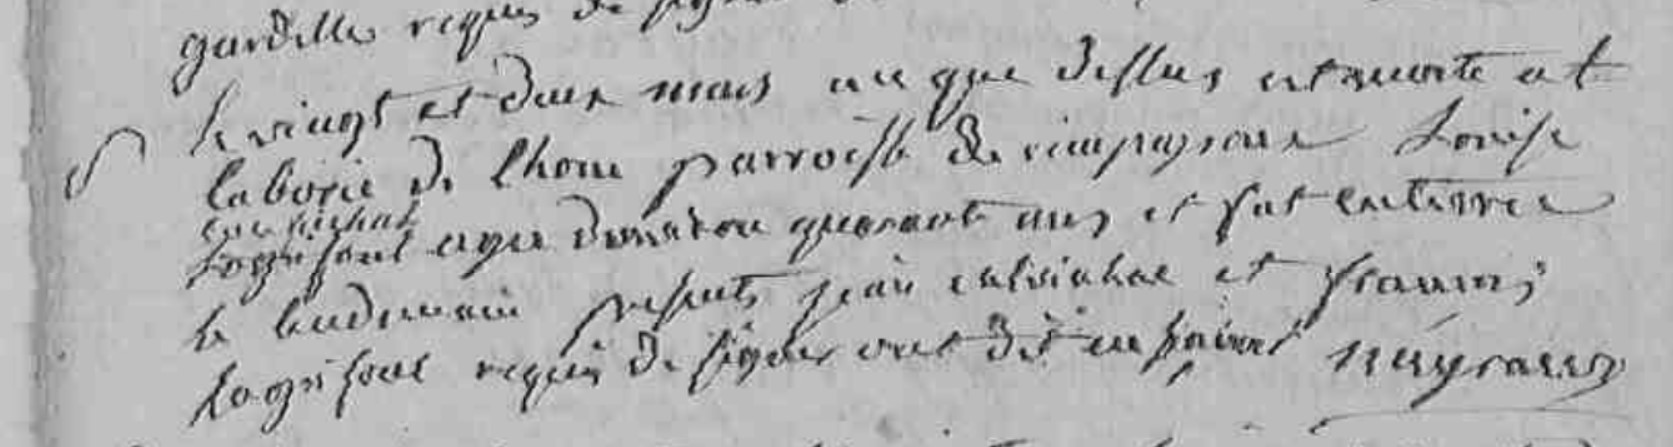 gardelle requis de signer
le vingt et deux mars an que dessus est morte at
laborie de lhom parroisse de rinpeyroux Louise
calvinhac
Logrifoul agee denviron quarante ans et fut enterree
le lendemain presents jean calvinhac et francois
Logrifoul requis de signer ont dit ne scavoir neyraux